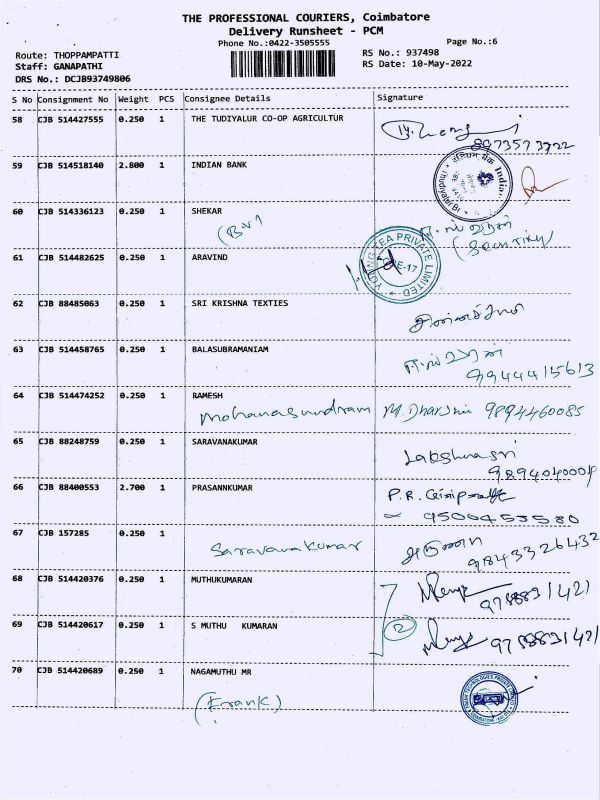 THE PROFESSIONAL COURIERS, Coimbatore
Delivery Runsheet - PCM
Phone No.:0422-3505555
Page No.:6
Route: THOPPAMPATTI
RS No.: 937498
Staff: GANAPATHI
RS Date: 10-May-2022
DRS No.: DCJB93749806
S No Consignment No Weight PCS Consignee Details Signature
58 CJB 514427555 0.250 1 THE TUDIYALUR CO-OP AGRICULTUR
8973573722
59 CJB 514518140 2.800 1 INDIAN BANK
60 CJB 514336123 0.250 1 SHEKAR
(Security)
61 CJB 514482625 0.250 1 ARAVIND
TEA PRIVATE LIMITED
62 CJB 88485063 0.250 1 SRI KRISHNA TEXTIES
63 CJB 514458765 0.250 1 BALASUBRAMANIAM
9944415613
64 CJB 514474252 0.250 1 RAMESH
Mohanasundram M. Dharshu 9894460085
65 CJB 88248759 0.250 1 SARAVANAKUMAR
66 CJB 88400553 2.700 1 PRASANNKUMAR
P.R.
9500453580
67 CJB 157285 0.250 1
Saravanakumar
9843326432
68 CJB 514420376 0.250 1 MUTHUKUMARAN
9788831421
69 CJB 514420617 0.250 1 S MUTHU KUMARAN
2
9788831421
70 CJB 514420689 0.250 1 NAGAMUTHU MR
(Frank)